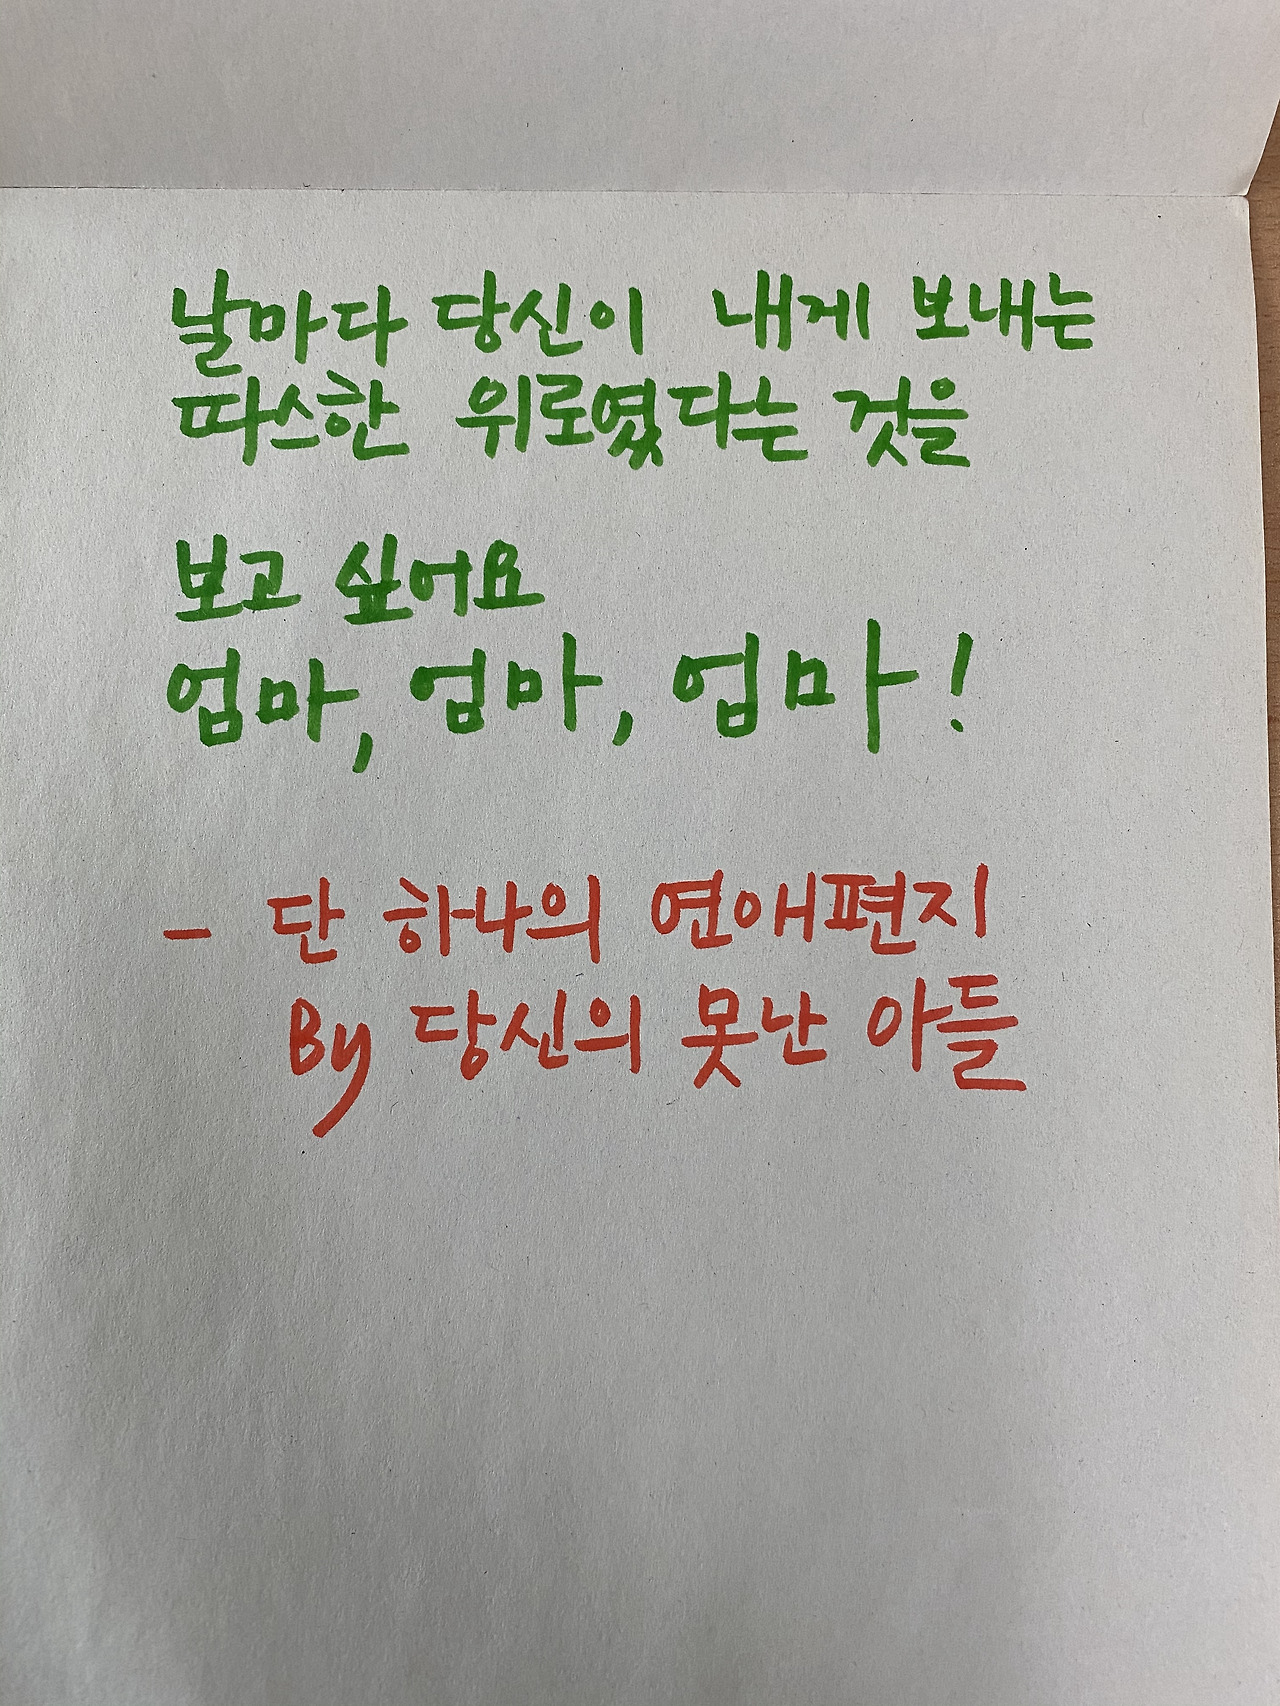 날마다 당신이 내게 보내는
따스한 위로였다는 것을
보고 싶어요
엄마, 엄마, 엄마!
- 단 하나의 연애편지
By 당신의 못난 아들